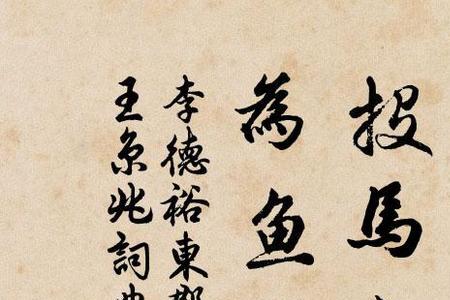 投馬
為鱼
李德裕東
王京兆詞